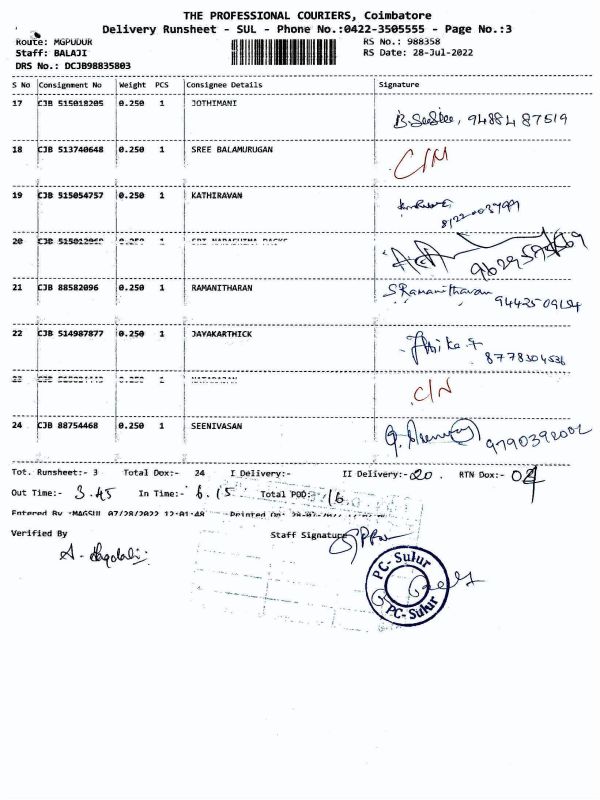 THE PROFESSIONAL COURIERS, Coimbatore
Delivery Runsheet - SUL - Phone No.:0422-3505555 - Page No.:3
Route: MGPUDUR
RS No.: 988358
Staff: BALAJI
RS Date: 28-Jul-2022
DRS No.: DCJB98835803
S No Consignment No Weight PCS Consignee Details Signature
17 CJB 515018205 0.250 1 JOTHIMANI 9488487519
18 CJB 513740648 0.250 1 SREE BALAMURUGAN C/N
19 CJB 515054757 0.250 1 KATHIRAVAN
20 CJB 0.250 1
21 CJB 88582096 0.250 1 RAMANITHARAN S Ramanitharan
22 CJB 514987877 0.250 1 JAYAKARTHICK 8778304536
23 CJB 0.250 C/N
24 CJB 88754468 0.250 1 SEENIVASAN 9790392002
Tot. Runsheet:- 3 Total Dox:- 24 I Delivery:- II Delivery:- 020. RTN Dox:- 04
Out Time:- 3.45 In Time:- 6.15 Total POD:- 16
Entered By :MAGSUL 07/28/2022 12:01:48 Printed On:
Verified By Staff Signature
PC-Sulur
PC-Sulur